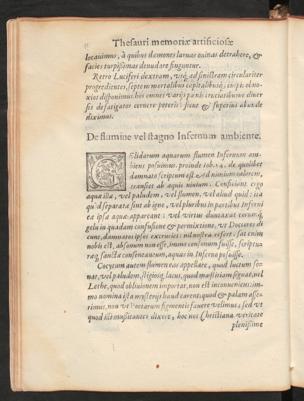 Thesauri memoriæ artificiosæ
locauimus, à quibus dæmones laruas ouinas detrahere, &
facies turpissimas denudare finguntur.
Retro Luciferi dextram, vsq; ad sinistram circulariter
progredientes, septem mortalibus capitalibusq;
disponimus: hos omnes varijs
se fatigatos cernere poteris: sicut & superius abunde
diximus.
De flumine vel stagno Infernum ambiente.
GElidarum aquarum flumen Infernum am-
biens possumus, proinde Iob. 24. de quolibet
damnato scriptum est: ad nimium calorem,
transiet ab aquis niuium. Consistens ergo
aqua ista, vel paludem, vel flumen, vel aliud quod
separata sint ab igne, vel pluribus in partibus Inferni
ipsa aquæ appareant: vel virtus
gelu in quadam confusione & permixtione, vt Doctores di-
cunt, damnatos ipsos excruciet: nil nostra refert: sat enim
nobis est, absonum non esse, immo consonum fuisse, scriptu-
ræq; sanctæ consentaneum, aquas in Inferno posuisse.
Cocytum autem flumen eas appellare, quod luctum so-
nat, vel paludem stigiosq; lacus, quod mæstitiam
Lethe, quod obliuionem importat, non est inconueniens: im-
mo nomina ista mysterijs haud carent: quod & palam asse-
rimus, non vt Poetarum figmentis fauere velimus; sed vt
quod illi dixere, hoc nos Christiana veritate
plenissime